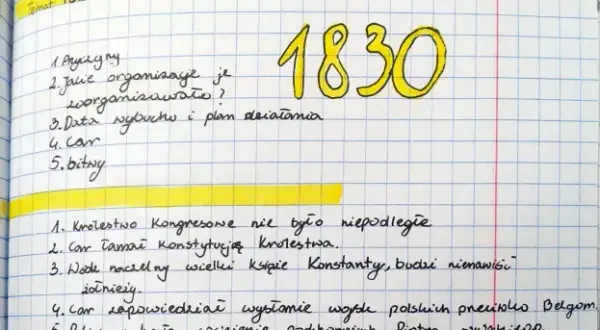 Temat
1830
1. Przyczyny
2. Jakie organizacje je
zorganizowało?
3. Data wybuchu i plan działania
4. Car
5. bitwy
1. Królestwo Kongresowe nie było niepodległe
2. Car łamał konstytucję Królestwa.
3. Wódz naczelny wielki książe Konstanty, budzi nienawiść
żołnierzy.
4. Car zapowiedział wysłanie wojsk polskich przeciwko Belgom.